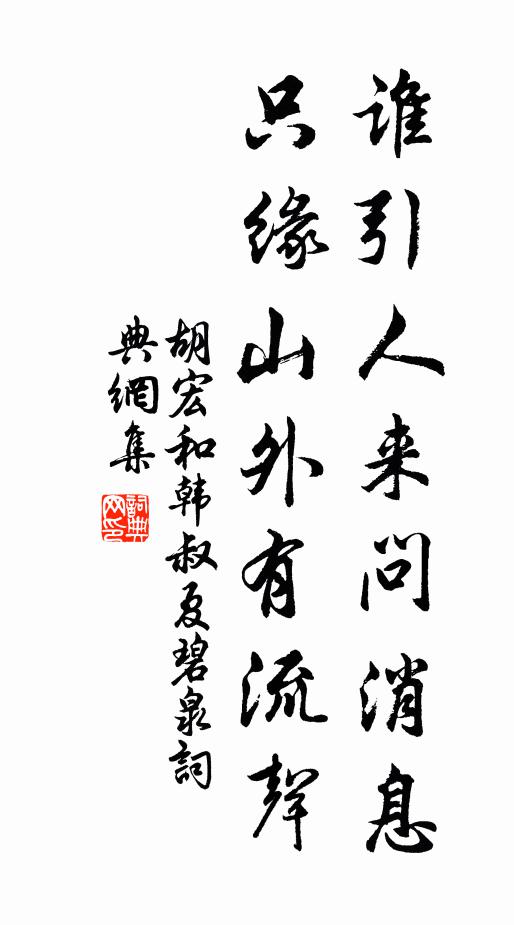 谁引人来问消息
只缘山外有流聲
胡宏和韩叔夏碧泉詞
典網集
詞典网印